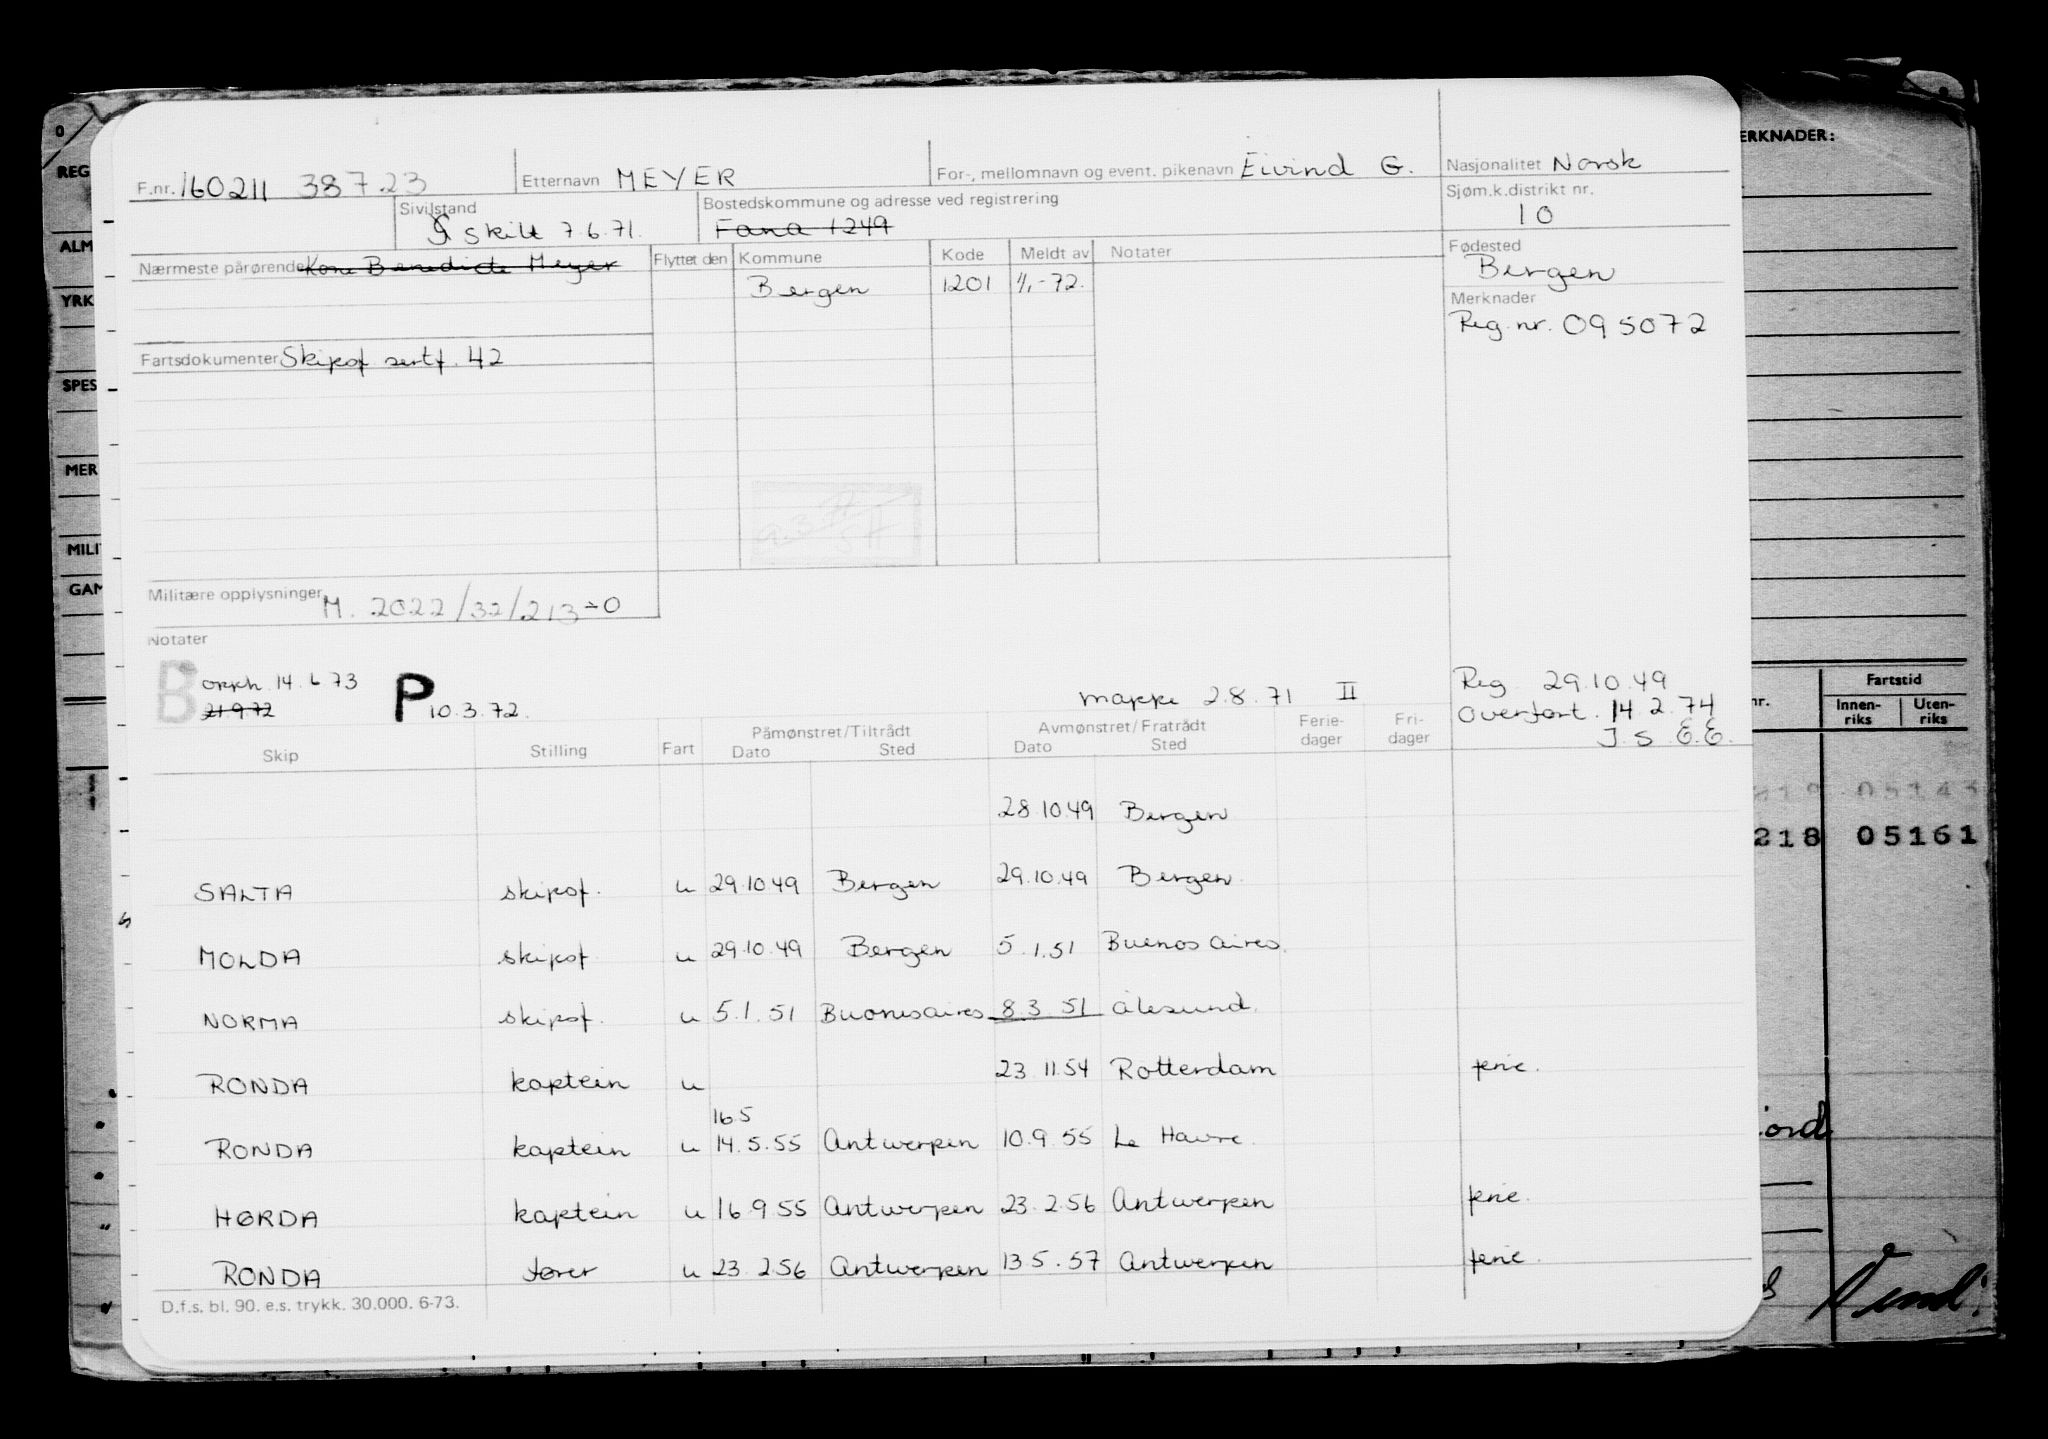 F.nr. 160211 38723 Etternavn MEYER For-, mellomnavn og event. pikenavn Eivind G. Nasjonalitet Norsk
Sivilstand skilt 7.6.71. Bostedskommune og adresse ved registrering Fana 1249 Sjøm.k.distrikt nr. 10
Nærmeste pårørende Kone Benedicte Meyer Flyttet den Kommune Kode Meldt av Notater Fødested Bergen
Bergen 1201 1/1-72.
Merknader
Reg. nr. 095072
Fartsdokumenter Skipsf sertf. 42
Militære opplysninger M. 2022/32/213-0
Notater
B 14.6.73 P 10.3.72. mappe 2.8.71 II Reg 29.10.49
21.9.72 Overført. 14.2.74
J.S E.E.
Skip Stilling Fart Påmønstret/Tiltrådt Dato Sted Avmønstret/Fratrådt Dato Sted Ferie-dager Fri-dager
28.10.49 Bergen
SALTA skipsf. u 29.10.49 Bergen 29.10.49 Bergen.
MOLDA skipsf u 29.10.49 Bergen 5.1.51 Buenos aires.
NORMA skipsf. u 5.1.51 Buonesaires 8.3.51 Ålesund.
RONDA kaptein u 23.11.54 Rotterdam ferie.
16.5
RONDA kaptein u 14.5.55 Antwerpen 10.9.55 Le Havre.
HØRDA kaptein u 16.9.55 Antwerpen 23.2.56 Antwerpen ferie.
RONDA fører u 23.2.56 Antwerpen 13.5.57 Antwerpen ferie.
D.f.s. bl. 90. e.s. trykk. 30.000. 6-73.
ERKNADER:
REG
ALM
YRK
SPES
MER
MILI
GAM
nr. Fartstid
Innen-riks Uten-riks
218 05161